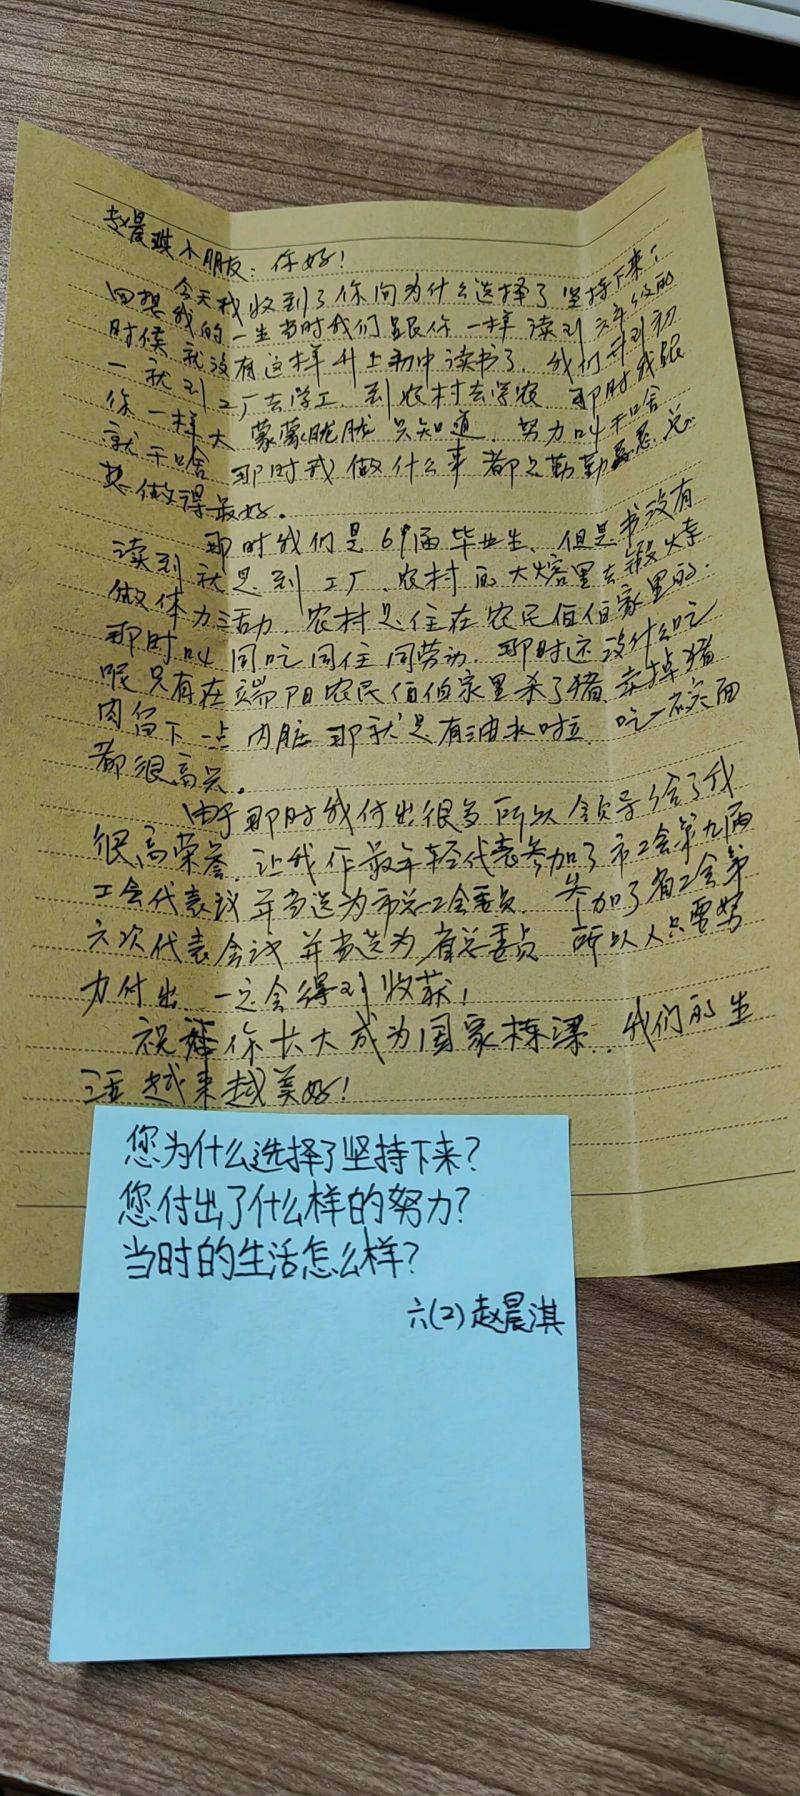 赵晨琪小朋友：你好！
今天我收到了你问为什么选择了坚持下来？
回想我的一生当时我们跟你一样读到六年级的
时侯就没有这样升上初中读书了．我们升到初
一就到工厂去学工、到农村去学农．那时我跟
你一样大蒙蒙胧胧只知道．努力叫干啥
就干啥．那时我做什么事都是勤勤恳恳．总
想做得最好。
那时我们是69届毕业生、但是书没有
读到就是到工厂、农村的大熔里去锻炼
做体力活动．农村是住在农民伯伯家里的．
那时叫同吃同住同劳动．那时还没什么吃
呢只有在端阳农民伯伯家里杀了猪．卖掉猪
肉留下一点内脏那就是有油水啦．吃一碗面
都很高兴。
由于那时我付出很多所以领导给了我
很高荣誉．让我作最年轻代表参加了市工会第九届
工会代表议并当选为市总工会委员．参加了省工会第
六次代表会议并当选为省总委员．所以人只要努
力付出．一定会得到收获！
祝福你长大成为国家栋梁．．我们的生
活越来越美好！
您为什么选择了坚持下来？
您付出了什么样的努力？
当时的生活怎么样？
六(2)赵晨淇